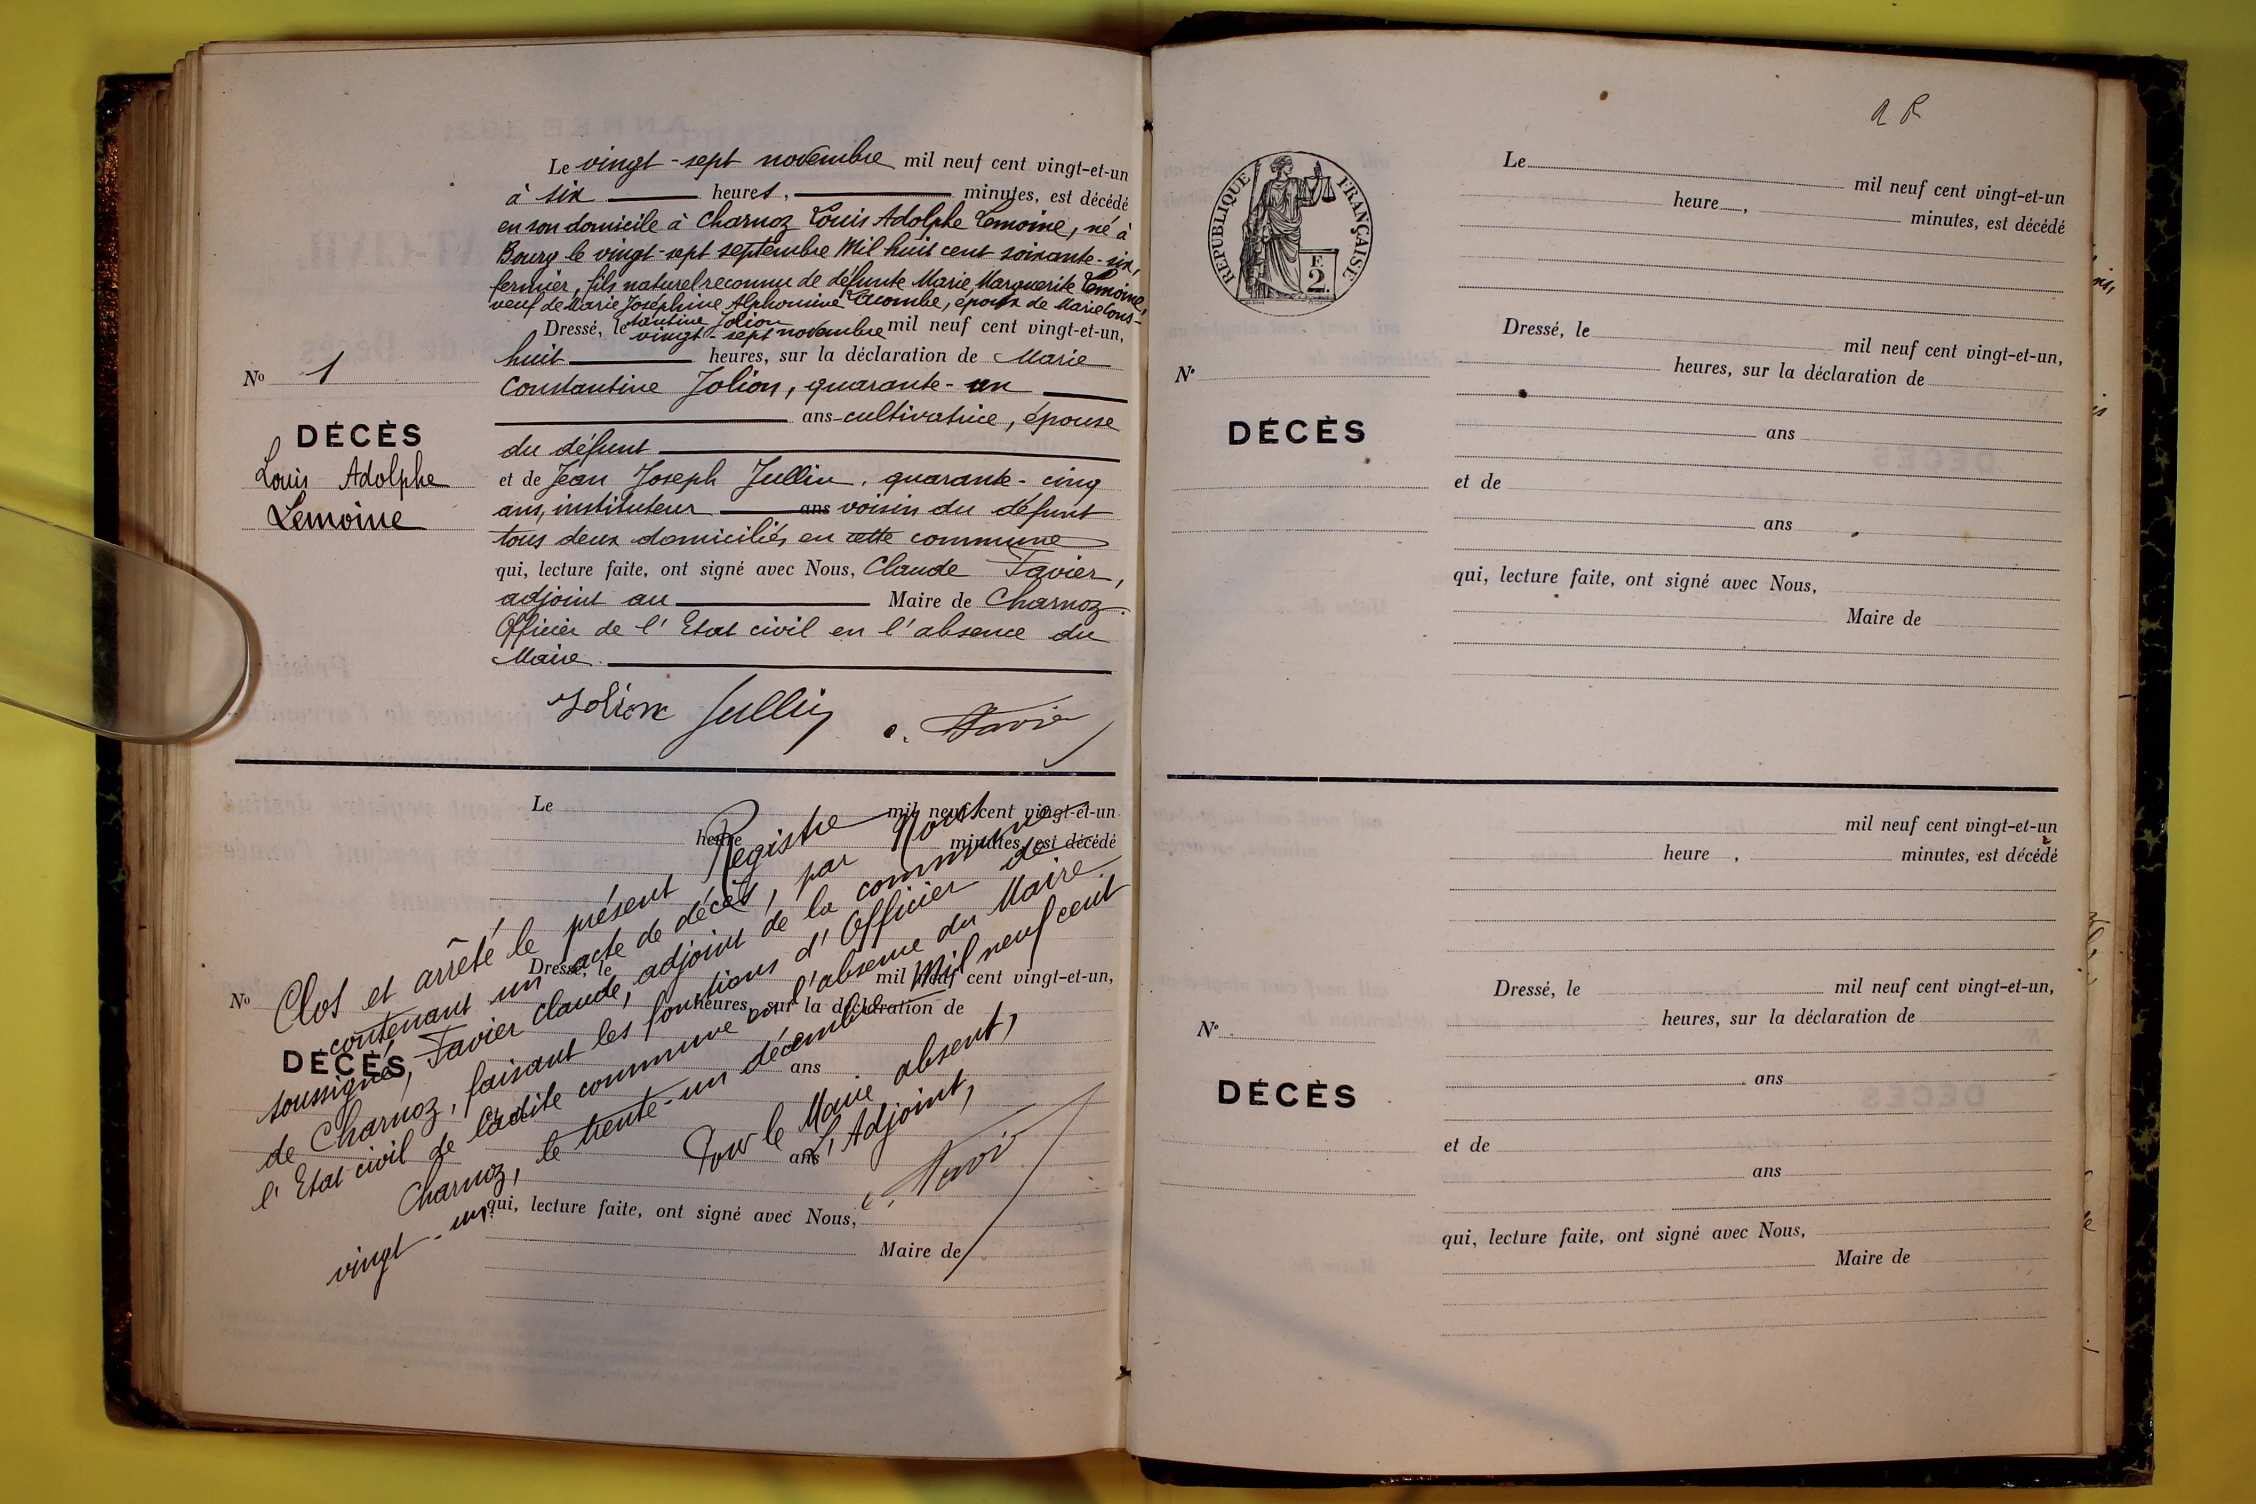 Le vingt-sept novembre mil neuf cent vingt-et-un
à six heures, minutes, est décédé
en son domicile à Charnoz Louis Adolphe Lemoine, né à
Bourg le vingt-sept septembre Mil huit cent soixante-six,
fermier, fils naturel reconnu de défunte Marie Marguerite Lemoine,
veuf de Marie Joséphine Alphonsine Lacombe, époux de Marie Cons-
tantine Jolion
Dressé, le vingt-sept novembre mil neuf cent vingt-et-un,
huit heures, sur la déclaration de Marie
Constantine Jolion, quarante-un
ans cultivatrice, épouse
du défunt
et de Jean Joseph Jullin, quarante-cinq
ans, instituteur ans voisin du défunt
tous deux domiciliés en cette commune
qui, lecture faite, ont signé avec Nous, Claude Favier,
adjoint au Maire de Charnoz.
Officier de l'Etat civil en l'absence du
Maire.
Jolion Jullin c. Favier
No 1
DÉCÈS
Louis Adolphe
Lemoine
Le mil neuf cent vingt-et-un
heure minutes, est décédé
Dressé, le mil neuf cent vingt-et-un,
heures, sur la déclaration de
ans
ans
qui, lecture faite, ont signé avec Nous,
Maire de
No
DÉCÈS
Clos et arrêté le présent Registre
contenant un acte de décès, par Nous
soussigné, Favier Claude, adjoint de la commune
de Charnoz, faisant les fonctions d'Officier de
l'Etat civil de ladite commune en l'absence du Maire.
Charnoz, le trente-un décembre Mil neuf cent
vingt-un.
Pour le Maire absent,
L'Adjoint,
c. Favier
RÉPUBLIQUE FRANÇAISE
F.
2
Le mil neuf cent vingt-et-un
heure, minutes, est décédé
Dressé, le mil neuf cent vingt-et-un,
heures, sur la déclaration de
ans
et de
ans
qui, lecture faite, ont signé avec Nous,
Maire de
N°
DÉCÈS
mil neuf cent vingt-et-un
heure, minutes, est décédé
Dressé, le mil neuf cent vingt-et-un,
heures, sur la déclaration de
ans
et de
ans
qui, lecture faite, ont signé avec Nous,
Maire de
N°
DÉCÈS